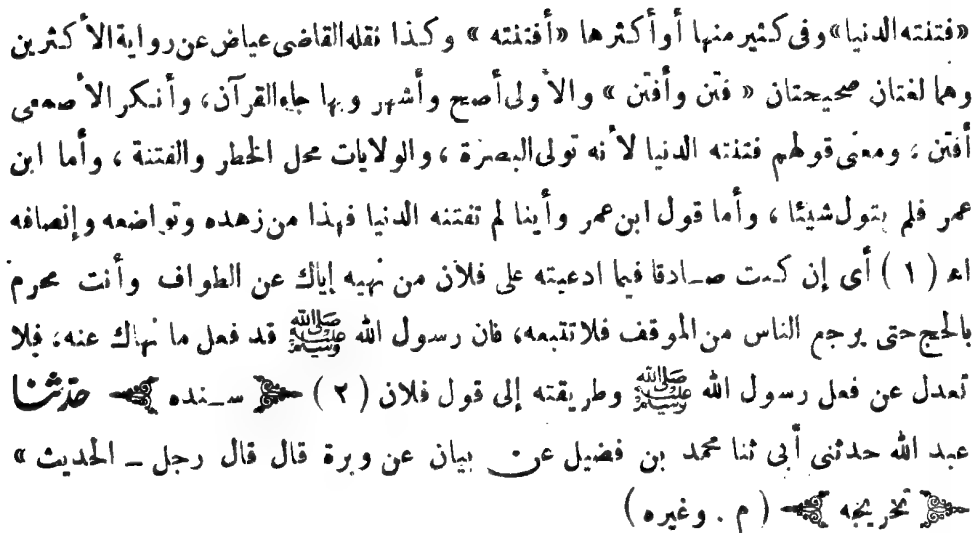 «فتنته الدنيا» وفى كثير منها أو أكثرها «أفتنته » وكذا نقله القاضى عياض عن رواية الأكثرين
وهما لغتان صحيحتان « فتن وأفتن » والأولى أصح وأشهر وبها جاء القرآن، وأنكر الأصمعى
أفتن ؛ ومعنى قولهم فتنته الدنيا لأنه تولى البصرة ، والولايات محل الخطر والفتنة ، وأما ابن
عمر فلم يتول شيئا ، وأما قول ابن عمر وأينا لم تفتنه الدنيا فهذا من زهده وتواضعه وإنصافه
اهـ ( ١ ) أى إن كنت صادقا فيما ادعيته على فلان من نهيه إياك عن الطواف وأنت محرم
بالحج حتى يرجع الناس من الموقف فلا تتبعه، فان رسول الله ﷺ قد فعل ما نهاك عنه، فلا
تعدل عن فعل رسول الله ﷺ وطريقته إلى قول فلان ( ٢ ) ﴿ سنده ﴾ حدثنا
عبد الله حدثنى أبى ثنا محمد بن فضيل عن بيان عن وبرة قال قال رجل ـ الحديث »
﴿ تخريجه ﴾ ( م . وغيره )